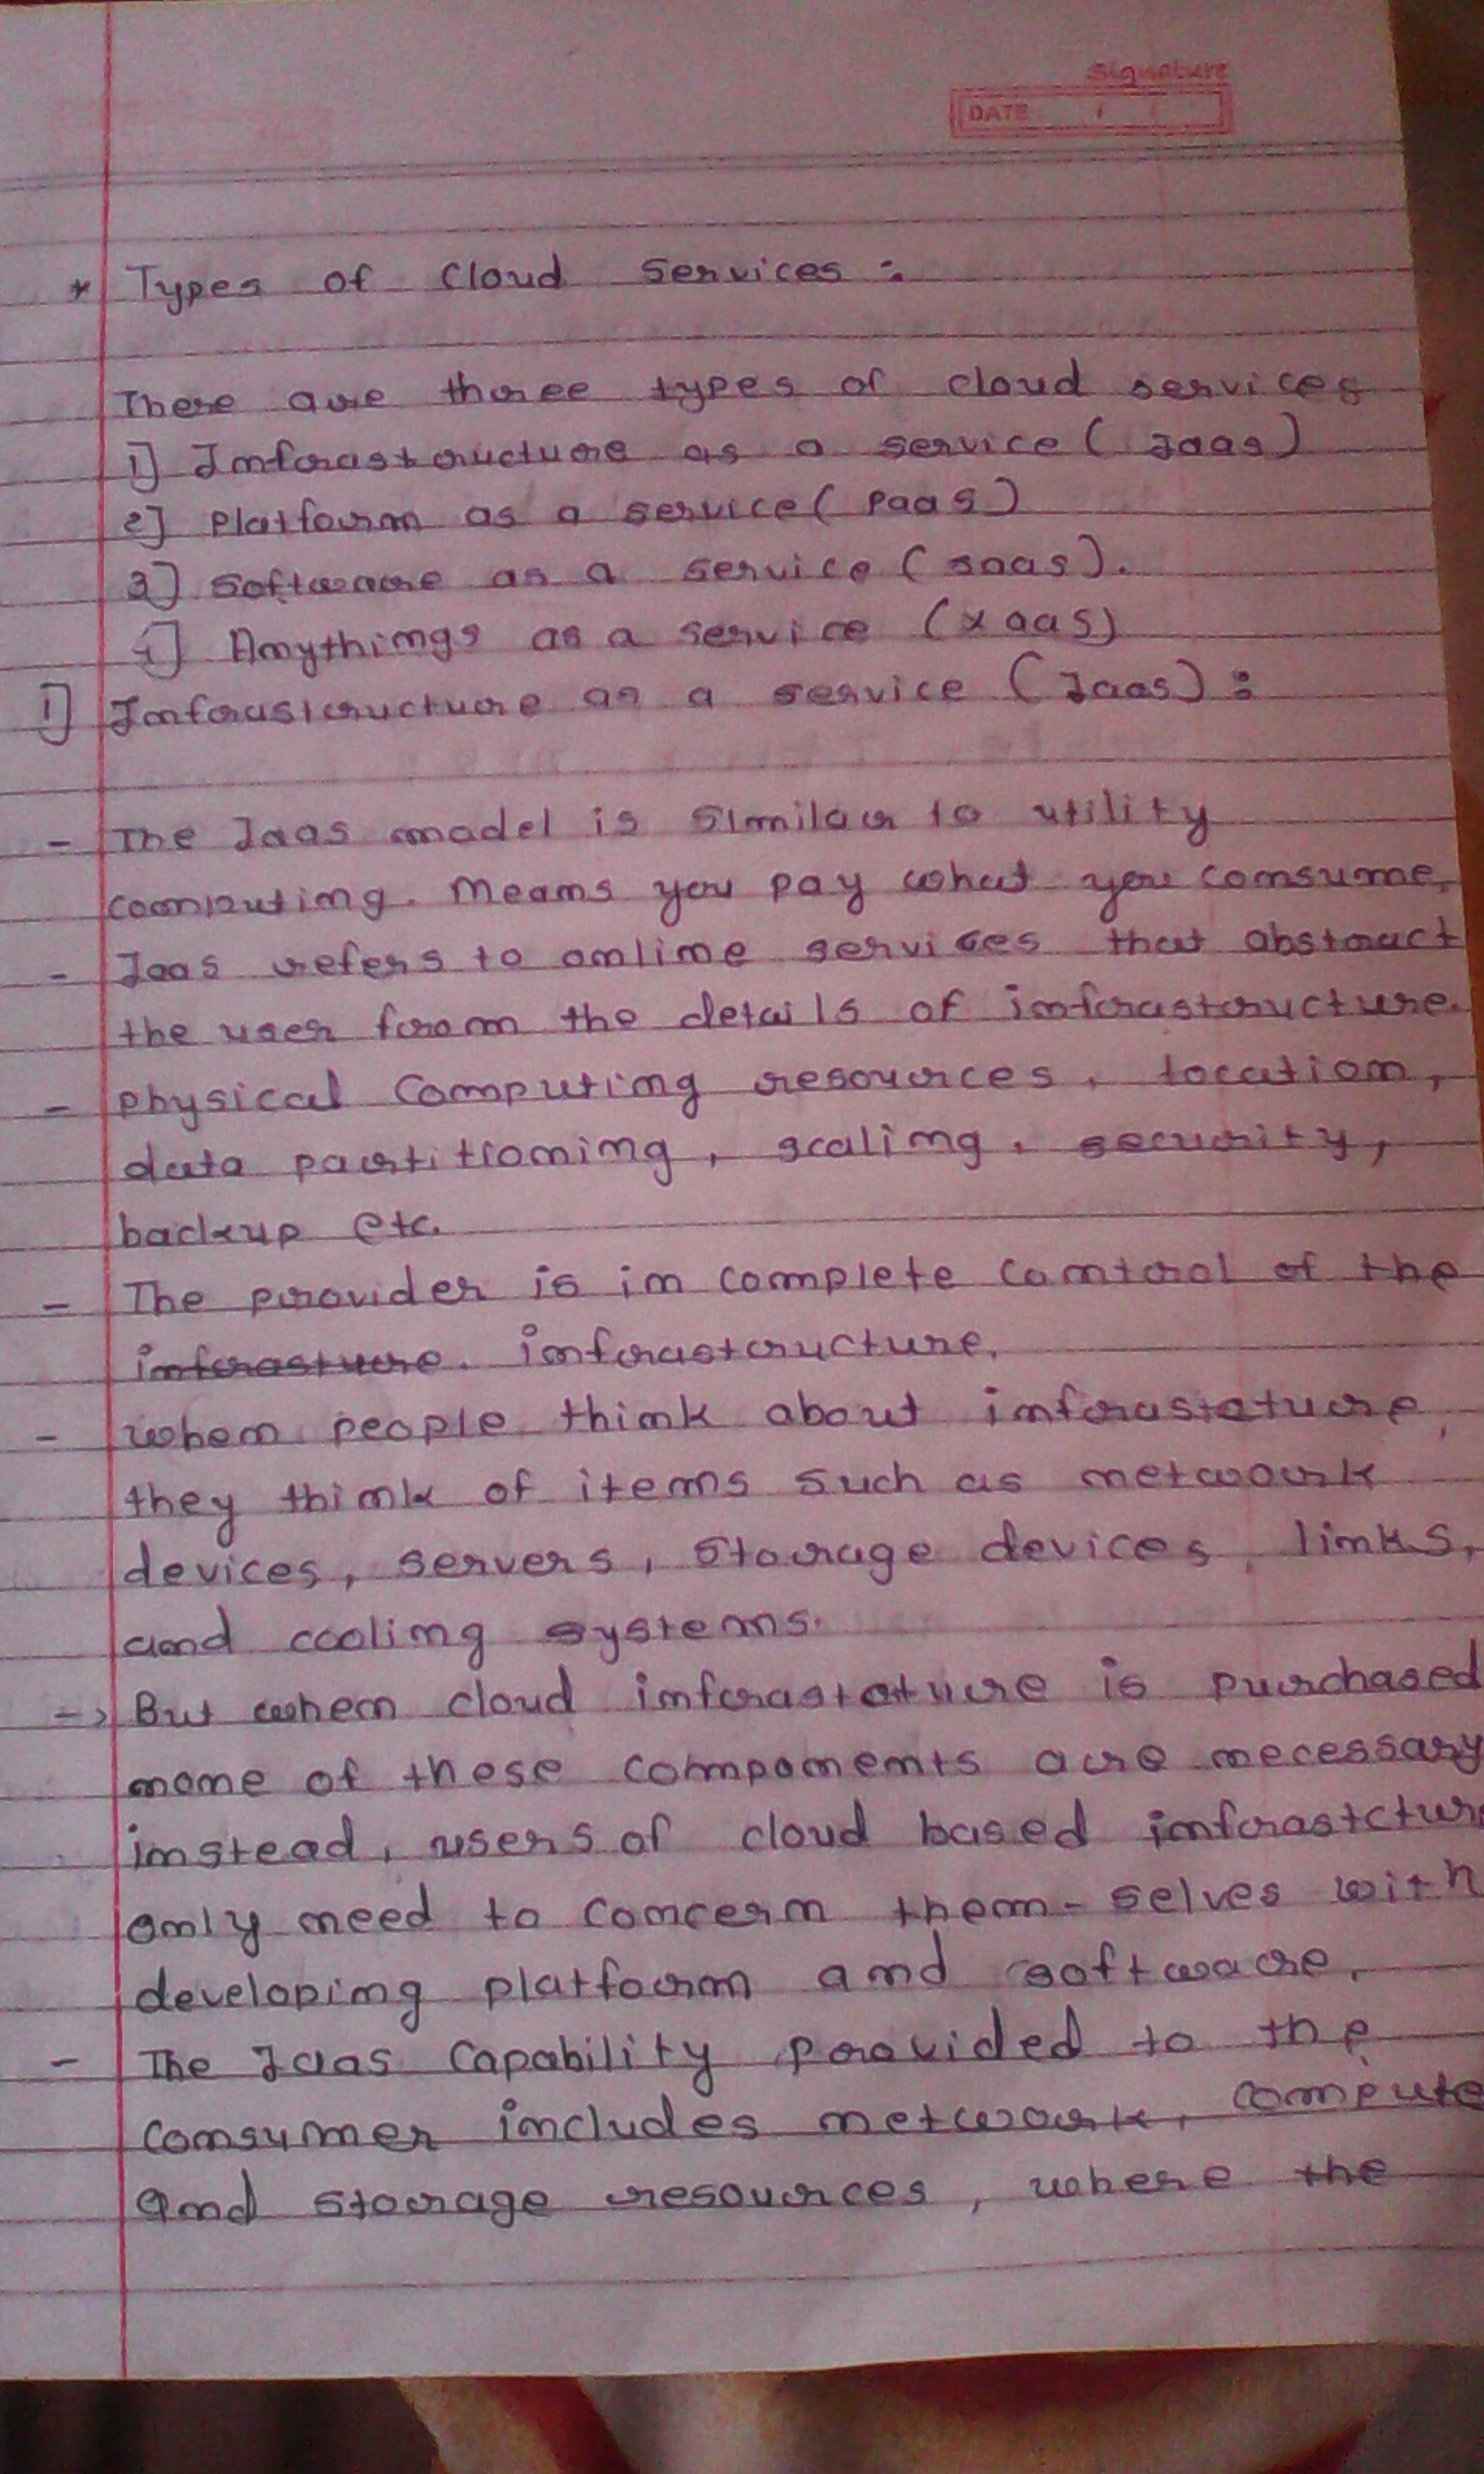 Signature
DATE / /
* Types of Cloud Services :
There are three types of cloud services
1] Infrastructure as a service ( Iaas )
2] Platform as a service ( Paas )
3] Software as a service ( saas ).
4] Anythings as a service ( xaas )
1] Infrastructure as a service ( Iaas ) :
- The Iaas model is similar to utility
computing. Means you pay what you consume.
- Iaas refers to online services that abstract
the user from the details of infrastructure.
- physical computing resources, location,
data partitioning, scaling, security,
backup etc.
- The provider is in complete control of the
infrasture. infrastructure.
- when people think about infrastature,
they think of items such as network
devices, servers, storage devices, links,
and cooling systems.
-> But when cloud infrastature is purchased
none of these components are necessary
instead, users of cloud based infrastctur
only need to concern them-selves with
developing platform and software.
- The Iaas capability provided to the
consumer includes network, compute
and storage resources, where the